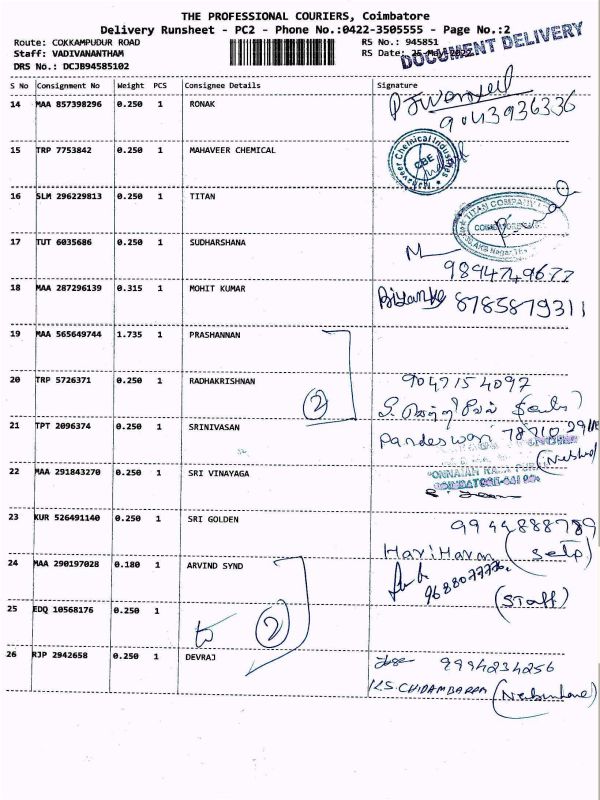 THE PROFESSIONAL COURIERS, Coimbatore
Delivery Runsheet - PC2 - Phone No.:0422-3505555 - Page No.:2
Route: COKKAMPUDUR ROAD
Staff: VADIVANANTHAM
DRS No.: DCJB94585102
RS No.: 945851
RS Date: 25-May-2022
DOCUMENT DELIVERY
S No Consignment No Weight PCS Consignee Details Signature
14 MAA 857398296 0.250 1 RONAK
9043936336
15 TRP 7753842 0.250 1 MAHAVEER CHEMICAL
Mahaveer Chemical Industries
CBE
16 SLM 296229813 0.250 1 TITAN
TITAN COMPANY
17 TUT 6035686 0.250 1 SUDHARSHANA
18 MAA 287296139 0.315 1 MOHIT KUMAR
8785879311
19 MAA 565649744 1.735 1 PRASHANNAN
20 TRP 5726371 0.250 1 RADHAKRISHNAN
9047154097
2
21 TPT 2096374 0.250 1 SRINIVASAN
Pandeswari
22 MAA 291843270 0.250 1 SRI VINAYAGA
23 KUR 526491140 0.250 1 SRI GOLDEN
9944888789
HariHaran (Self)
24 MAA 290197028 0.180 1 ARVIND SYND
(STAFF)
25 EDQ 10568176 0.250 1
2
26 RJP 2942658 0.250 1 DEVRAJ
9994234256
K.S CHIDAMBARA